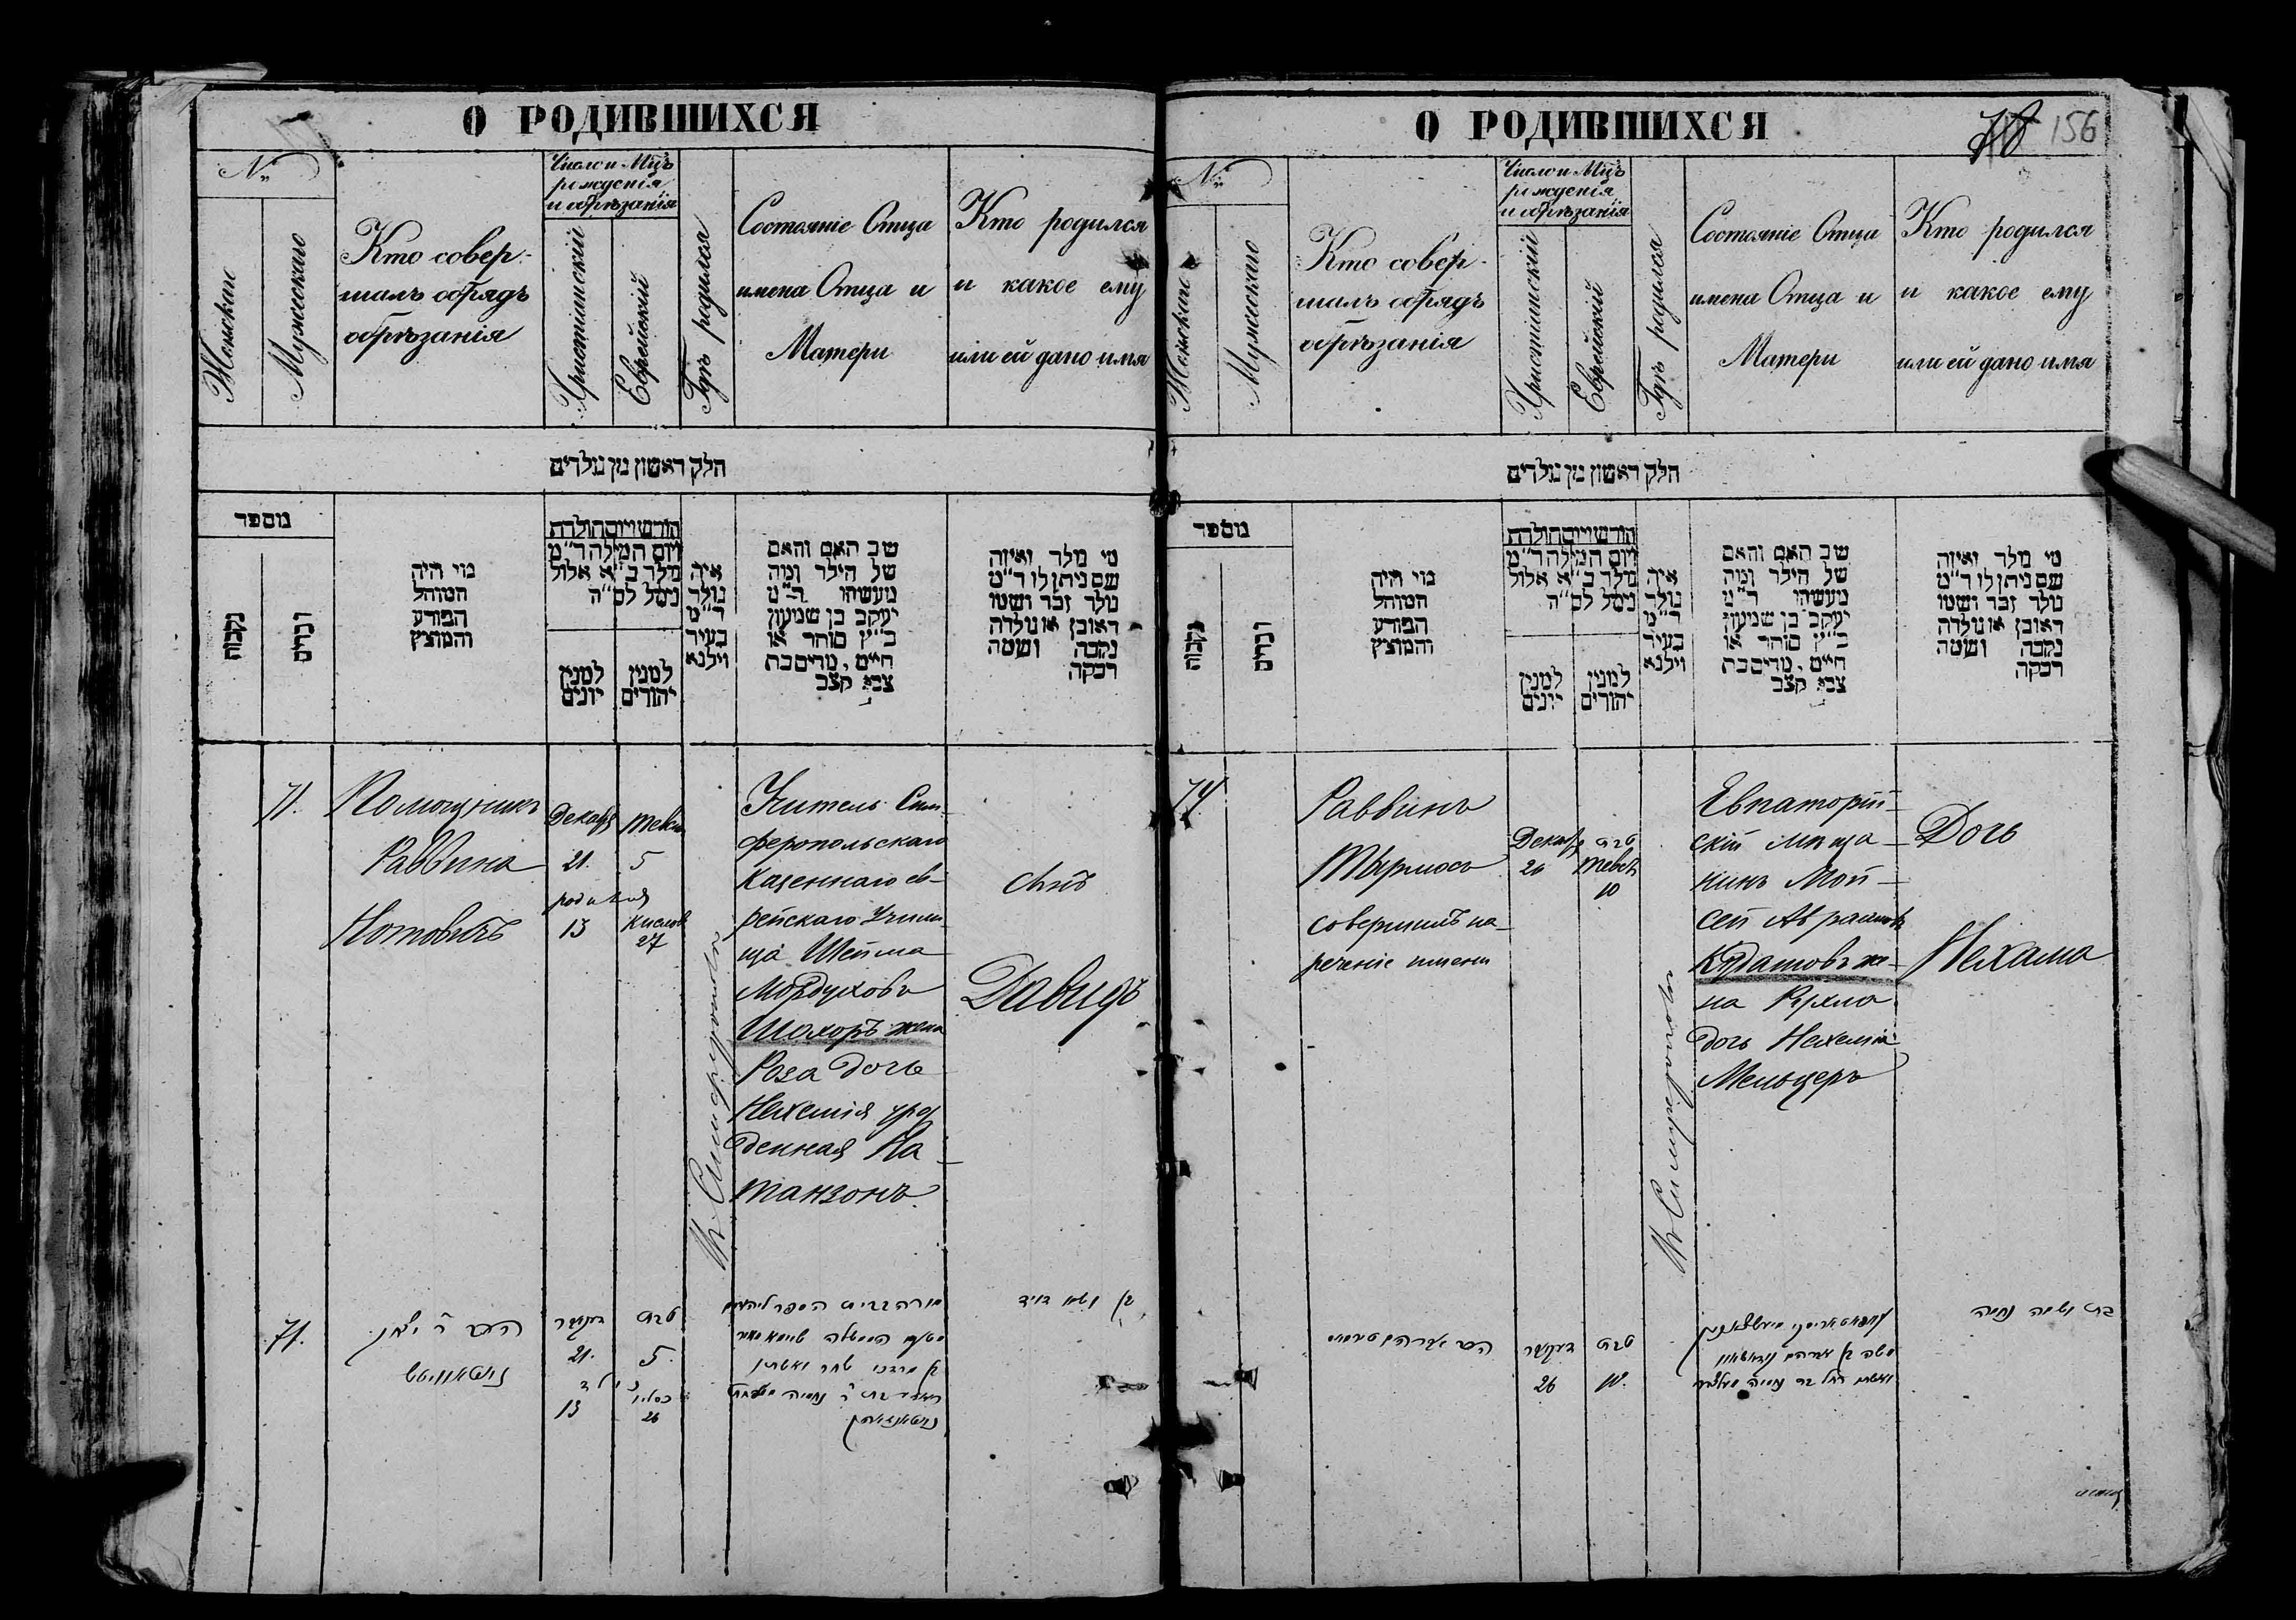 О РОДИВШИХСЯ
№
Женскаго
Мужескаго
Кто совер-
шалъ обрядъ
обрѣзанія
Число и Мцъ
рожденія
и обрѣзанія
Христіанскій
Еврейскій
Гдѣ родился
Состояніе Отца
имена Отца и
Матери
Кто родился
и какое ему
или ей дано имя
חלק ראשון מן נולדים
מספר
נקבות
זכרים
מי היה
המוהל
הפורע
והמוצץ
חודש ויום הולדת
ויום המילה ר״מ
נולד ב״א אלול
נימל לס״ה
למנין
יונים
למנין
יהודים
איה
נולד
ר״מ
בעיר
וילנא
שב האם והאם
של הילד ומה
מעשהו ר״מ
יעקב בן שמעון
כ״ץ סוחר או
חיים, מרים בת
צבי קצב
מי נולד ואיזה
שם ניתן לו ר״מ
נולד זכר ושמו
ראובן או נולדה
נקבה ושמה
רבקה
71.
Помощникъ
Раввина
Нотовичъ
Декабр
21.
родился
13
Тевет
5
Кислев
27
Въ Симферополѣ
Учитель Сим-
феропольскаго
Казеннаго ев-
рейскаго Учили
ща Шейма
Мордуховъ
Шохоръ жена
Роза дочь
Нехемія урож
денная На-
танзонъ
сынъ
Давидъ
71.
הרב ר׳
נוטאוויטש
דעקאבר
21.
13
טבת
5.
כסליו
26
בן ושמו דויד
О РОДИВШИХСЯ
156
№
Женскаго
Мужескаго
Кто совер-
шалъ обрядъ
обрѣзанія
Число и Мцъ
рожденія
и обрѣзанія
Христіанскій
Еврейскій
Гдѣ родился
Состояніе Отца
имена Отца и
Матери
Кто родился
и какое ему
или ей дано имя
חלק ראשון מן נולדים
מספר
נקבות
זכרים
מי היה
המוהל
הפורע
והמוצץ
חודש ויום הולדת
ויום המילה ר״מ
נולד ב״א אלול
נימל לס״ה
למנין
יונים
למנין
יהודים
איה
נולד
ר״מ
בעיר
וילנא
שב האם והאם
של הילד ומה
מעשהו ר״מ
יעקב בן שמעון
כ״ץ סוחר או
חיים, מרים בת
צבי קצב
מי נולד ואיזה
שם ניתן לו ר״מ
נולד זכר ושמו
ראובן או נולדה
נקבה ושמה
רבקה
74
Раввинъ
Тырмосъ
совершилъ на-
реченіе имени
Декабр
26
טבת
Тевет
10
Въ Симферополѣ
Евпаторій-
скій мѣща-
нинъ Мой-
сей Аврамовъ
же-
на Рухла
дочь Нехемія
Мельцеръ
Дочь
Нехама
הרב אברהם
דעקאבר
26
טבת
10.
משה בן אברהם
ואשתו רחל בת נחמיה מעלצער
בת ושמה נחמה